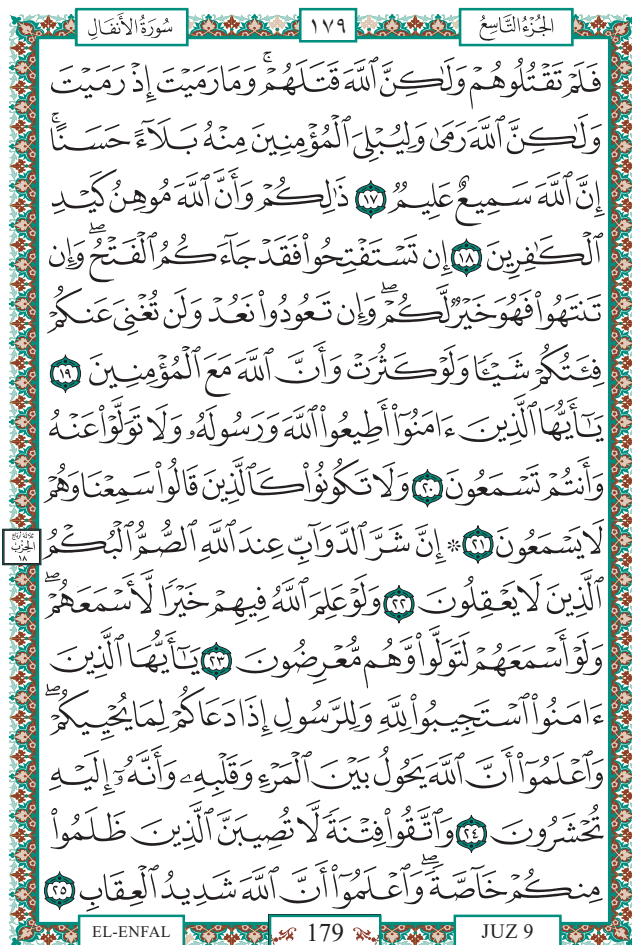 سُورَةُ الأَنفَالِ ١٧٩ الجُزْءُ التَّاسِعُ
فَلَمْ تَقْتُلُوهُمْ وَلَٰكِنَّ ٱللَّهَ قَتَلَهُمْۚ وَمَا رَمَيْتَ إِذْ رَمَيْتَ
وَلَٰكِنَّ ٱللَّهَ رَمَىٰ وَلِيُبْلِىَ ٱلْمُؤْمِنِينَ مِنْهُ بَلَآءً حَسَنًاۚ
إِنَّ ٱللَّهَ سَمِيعٌ عَلِيمٌ ١٧ ذَٰلِكُمْ وَأَنَّ ٱللَّهَ مُوهِنُ كَيْدِ
ٱلْكَٰفِرِينَ ١٨ إِن تَسْتَفْتِحُوا۟ فَقَدْ جَآءَكُمُ ٱلْفَتْحُۖ وَإِن
تَنتَهُوا۟ فَهُوَ خَيْرٌ لَّكُمْۖ وَإِن تَعُودُوا۟ نَعُدْ وَلَن تُغْنِىَ عَنكُمْ
فِئَتُكُمْ شَيْـًٔا وَلَوْ كَثُرَتْ وَأَنَّ ٱللَّهَ مَعَ ٱلْمُؤْمِنِينَ ١٩
يَٰٓأَيُّهَا ٱلَّذِينَ ءَامَنُوٓا۟ أَطِيعُوا۟ ٱللَّهَ وَرَسُولَهُۥ وَلَا تَوَلَّوْا۟ عَنْهُ
وَأَنتُمْ تَسْمَعُونَ ٢٠ وَلَا تَكُونُوا۟ كَٱلَّذِينَ قَالُوا۟ سَمِعْنَا وَهُمْ
لَا يَسْمَعُونَ ٢١ ۞ إِنَّ شَرَّ ٱلدَّوَآبِّ عِندَ ٱللَّهِ ٱلصُّمُّ ٱلْبُكْمُ
ثلاثة أرباع
الحزب
١٨
ٱلَّذِينَ لَا يَعْقِلُونَ ٢٢ وَلَوْ عَلِمَ ٱللَّهُ فِيهِمْ خَيْرًا لَّأَسْمَعَهُمْۖ
وَلَوْ أَسْمَعَهُمْ لَتَوَلَّوا۟ وَّهُم مُّعْرِضُونَ ٢٣ يَٰٓأَيُّهَا ٱلَّذِينَ
ءَامَنُوا۟ ٱسْتَجِيبُوا۟ لِلَّهِ وَلِلرَّسُولِ إِذَا دَعَاكُمْ لِمَا يُحْيِيكُمْۖ
وَٱعْلَمُوٓا۟ أَنَّ ٱللَّهَ يَحُولُ بَيْنَ ٱلْمَرْءِ وَقَلْبِهِۦ وَأَنَّهُۥٓ إِلَيْهِ
تُحْشَرُونَ ٢٤ وَٱتَّقُوا۟ فِتْنَةً لَّا تُصِيبَنَّ ٱلَّذِينَ ظَلَمُوا۟
مِنكُمْ خَآصَّةًۖ وَٱعْلَمُوٓا۟ أَنَّ ٱللَّهَ شَدِيدُ ٱلْعِقَابِ ٢٥
EL-ENFAL 179 JUZ 9